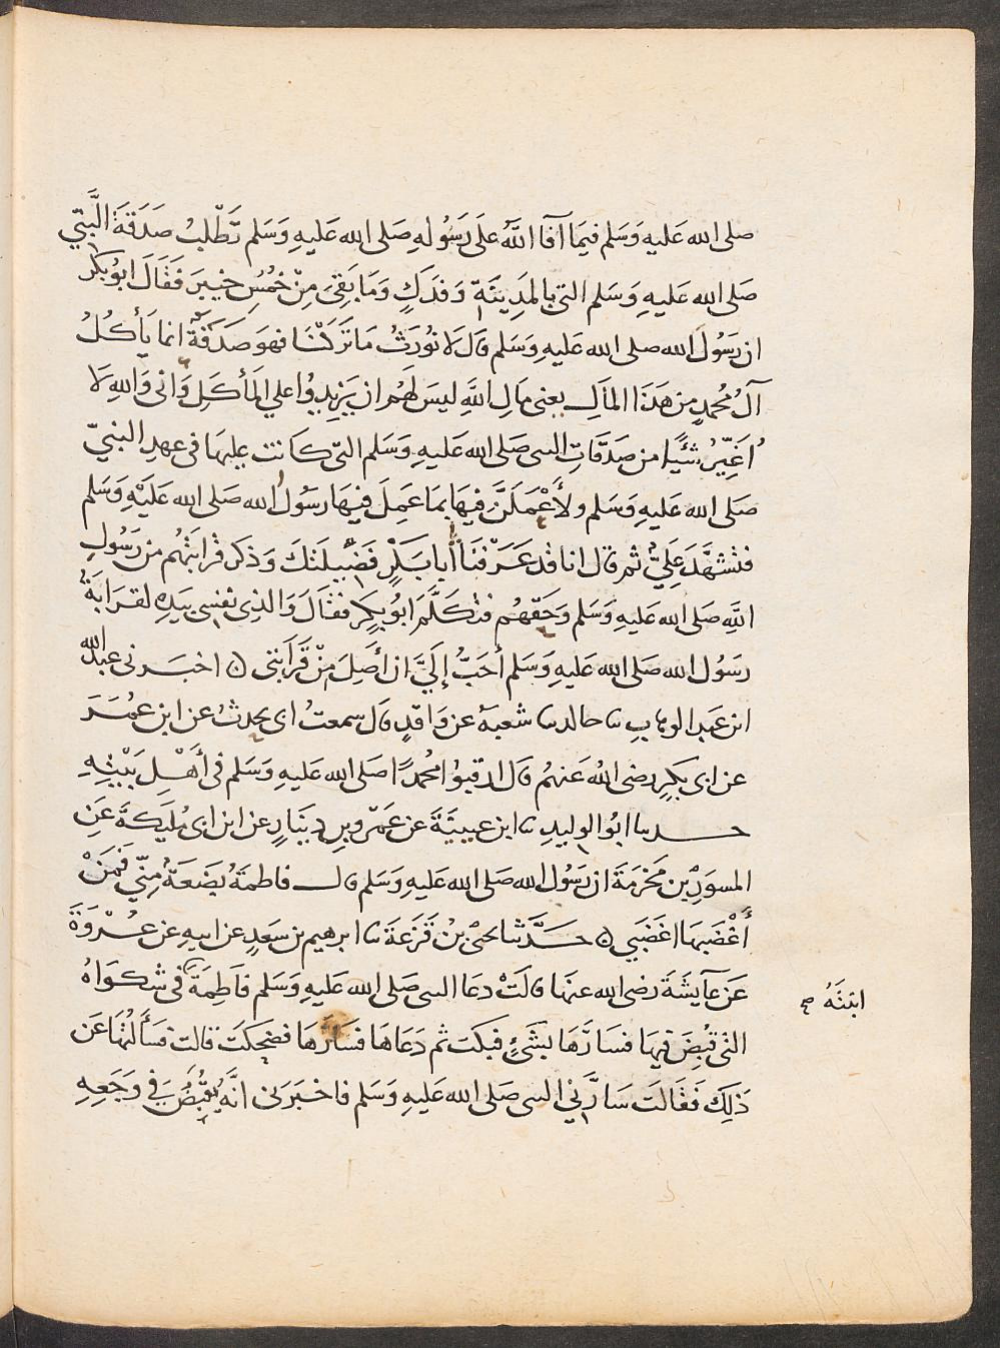 صلى الله عَليهِ وَسَلم فيمَا آفَا اللَّهُ عَلَى رَسُولهِ صَلى الله عَليهِ وَسَلم تَطْلبُ صَدَقةَ النَّبيّ
صَلى الله عَليهِ وَسَلم التى بالمَدِينَةِ وَفدَكٍ وَمَا بَقِىَ مِنْ خُمُسِ خيبَرَ فَقَالَ ابوُبكرٍ
ان رَسُولَ الله صلى الله عَليهِ وَسَلم قال لَا نُورَثُ مَا تَرَكْنَا فهوَ صَدَقَةٌ انما يَأكُلُ
آلُ مُحمدٍ من هَذَا المَالِ يعنى مَالِ اللَّهِ ليسَ لهَمُ ان يَزِيدُوا على المَأكَلِ وَانى وَاللهِ لَا
أُغَيِّرُ شَيًا من صَدَقَاتِ النبى صَلى الله عَليهِ وَسَلم التى كانت عليهَا فى عهدِ النبىّ
صَلى الله عَليهِ وَسَلم ولأَعْمَلَنَّ فيهَا بمَا عَمِلَ فيهَا رسُولُ الله صَلى الله عَليْهِ وَسَلم
فتشهَّدَ عَلِىٌّ ثم قال انا قد عَرَفنَا يأبا بَكْرٍ فَضِيلَتَكَ وَذكر قرابتهُم من رَسُولِ
اللَّهِ صَلى الله عَليهِ وَسَلم وَحَقهُم فتكَلَّمَ ابُو بكرٍ فقَالَ وَالذِى نفسِى بيَدِهِ لقرَابَةُ
رَسُول الله صَلى الله عَليهِ وَسَلم أحَبُّ إِلَيَّ ان أَصِلَ مِنْ قَرَابَتى ۞ اخبَرنى عبدالله
ابن عَبد الوهابِ ثنا خالد ثنا شعبَةُ عن وَاقدٍ قال سمعتُ ابى يحدثُ عن ابن عمُرَ
عن ابى بكرٍ رضى الله عَنهُم قال ارقبُوا مُحمدًا صَلى الله عَليهِ وَسَلم فى أَهْلِ بَيْتِهِ
حدثنا ابُو الوليدِ ثنا ابن عيينَةَ عن عَمْرو بن دِينَارٍ عن ابن ابى مُلَيكةَ عَنِ
المسوَرِ بن مَخرَمَةَ ان رَسُول الله صَلى الله عَليهِ وَسَلم قال فاطمَةُ بَضعَةٌ مِنّى فَمَنْ
أَغْضَبهَا اغضَبَنِي ۞ حَدَّثنا يحيى بنُ قَزعَةَ ثنا ابرهيم بن سَعدٍ عن ابيهِ عن عُرْوَةَ
عَن عَآيشَةَ رضى الله عنهَا قالتْ دعَا النبى صَلى الله عَليهِ وَسَلم فاطِمَةَ فى شكوَاهُ
ابنَتَهُ صح
التى قُبِضَ فيهَا فسَارَّهَا بشَىْءٍ فبكت ثم دَعَاهَا فسَارَّهَا فضحِكت قالت فسَأَلتُهَا عَن
ذَلِكَ فَقَالَت سَارَّنى النبى صَلى الله عَليهِ وَسَلم فاخبَرَنى انَّهُ يُقْبَضُ في وَجَعِهِ